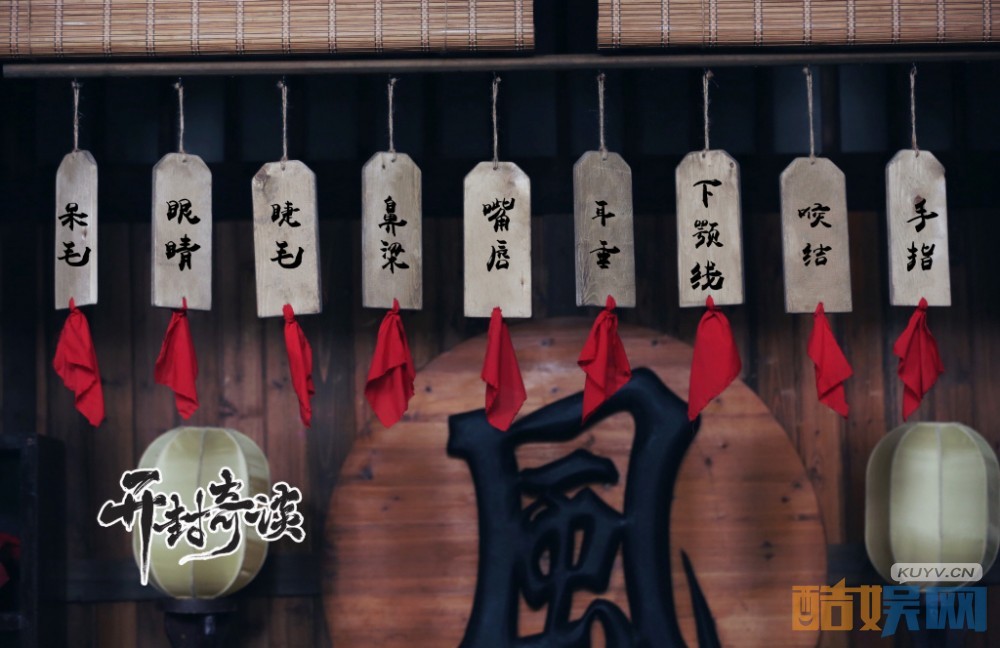 呆毛
眼睛
睫毛
鼻梁
嘴唇
耳垂
下颚线
喉结
手指
風
开封奇谈
KUYV.CN
酷娱网